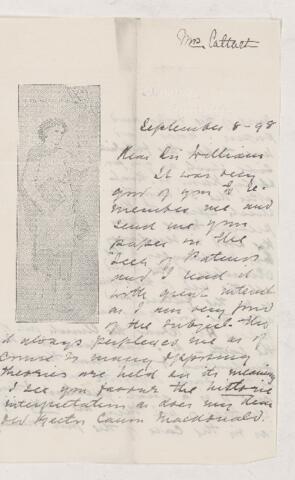 Mrs. Cattart
September 8-98
Dear Sir William
It was very
good of you to re-
member me and
send me your
paper on the
and I read it
with great interest
as I am very fond
of the subject tho
it always perplexes me as of
course so many opposing
theories are held on its meaning
I see you favour the historic
interpretation as does my dear
old Rector Canon Macdonald.